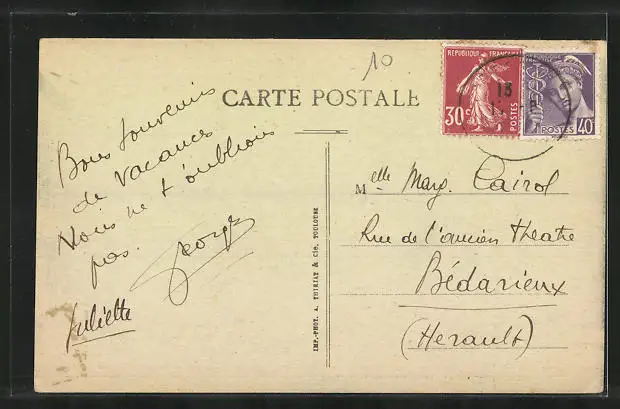 10
RÉPUBLIQUE FRANÇAISE
30c
POSTES
POSTES
40c
13
CARTE POSTALE
Bons souvenirs
de vacances
Nous ne t'oublions
pas.
George
Juliette
IMP.-PHOT. A. THIRIAT & Cie, TOULOUSE
Melle Marg. Cairol
Rue de l'ancien theatre
Bédarieux
(Herault)